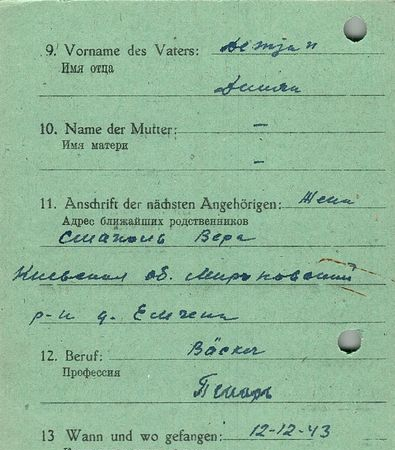 9. Vorname des Vaters: Демјан
Имя отца
Демян
10. Name der Mutter: –
Имя матери
–
11. Anschrift der nächsten Angehörigen: Жена
Адрес ближайших родственников
Вера
Киевская об. Мироновский
р-н д. Емчеха
12. Beruf: Bäcker
Профессия
Пекарь
13 Wann und wo gefangen: 12-12-43